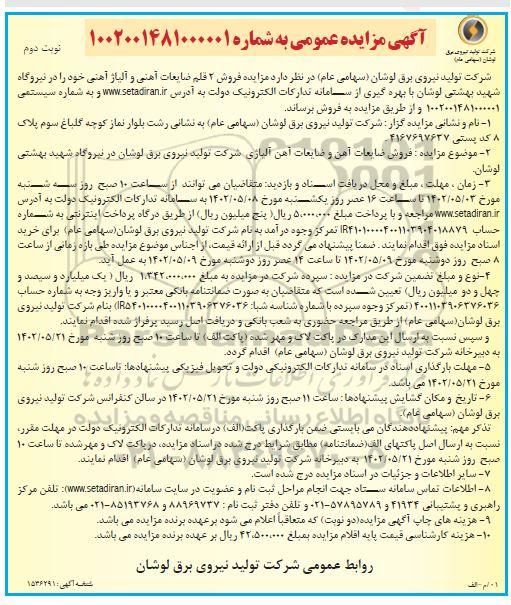 شرکت تولید نیروی برق
لوشان (سهامی عام)
آگهی مزایده عمومی به شماره ۱۰۰۲۰۰۱۴۸۱۰۰۰۰۰۱
نوبت دوم
شرکت تولید نیروی برق لوشان (سهامی عام) در نظر دارد مزایده فروش ۲ قلم ضایعات آهنی و آلیاژ آهنی خود را در نیروگاه
شهید بهشتی لوشان با بهره گیری از سـامانه تدارکات الکترونیک دولت به آدرس www.setadiran.ir و به شماره سیستمی
۱۰۰۲۰۰۱۴۸۱۰۰۰۰۰۱ و از طریق مزایده به فروش برساند.
۱- نام و نشانی مزایده گزار : شرکت تولید نیروی برق لوشان (سهامی عام) به نشانی رشت بلوار نماز کوچه گلباغ سوم پلاک
۸ کد پستی ۴۱۶۷۶۹۷۶۳۷
۲- موضوع مزایده : فروش ضایعات آهن و ضایعات آهن آلیاژی شرکت تولید نیروی برق لوشان در نیروگاه شهید بهشتی
لوشان.
۳- زمان ، مهلت ، مبلغ و محل دریافت اسـناد و بازدید: متقاضیان می توانند از سـاعت ۱۰ صبح روز سـه شـنبه
مورخ ۱۴۰۲/۰۵/۰۳ تا سـاعت ۱۶ عصر روز یکشـنبه مورخ ۱۴۰۲/۰۵/۰۸ به سـامانه تدارکات الکترونیک دولت به آدرس
www.setadiran.ir مراجعه و با پرداخت مبلغ ۵.۰۰۰.۰۰۰ ریال( پنج میلیون ریال) از طریق درگاه پرداخت اینترنتی به شـماره
حساب IR۴۱۰۱۰۰۰۰۴۰۰۱۱۰۳۹۰۴۰۱۸۸۷۹ تمرکز وجوه درآمد به نام شرکت تولید نیروی برق لوشان(سهامی عام) برای خرید
اسناد مزایده فوق اقدام نمایند . ضمنا پیشنهاد می گردد قبل از ارائه قیمت، از اجناس موضوع مزایده طی بازه زمانی از ساعت
۸ صبح روز دوشنبه مورخ ۱۴۰۲/۰۵/۰۹ تا ساعت ۱۴ عصر روز دوشنبه مورخ ۱۴۰۲/۰۵/۰۹ به عمل آید.
۴-نوع و مبلغ تضمین شرکت در مزایده : سپرده شرکت در مزایده به مبلغ ۱.۳۴۲.۰۰۰.۰۰۰ ریال ( یک میلیارد و سیصد و
چهل و دو میلیون ریال) تعیین شـده است که متقاضیان به صورت ضمانتنامه بانکی معتبر و یا واریز وجه به شماره حساب
۴۰۰۱۱۰۳۹۰۶۳۷۶۰۳۶ (تمرکز وجوه سپرده با شماره شناسه شبا: IR۵۴۰۱۰۰۰۰۴۰۰۱۱۰۳۹۰۶۳۷۶۰۳۶) بنام شرکت تولید نیروی
برق لوشان(سهامی عام) از طریق مراجعه حضوری به شعب بانکی و دریافت اصل رسید پرفراژ شده اقدام نمایند.
و سپس نسبت به ارسال این مدارک در پاکت لاک و مهر شده (پاکت الف) تا ساعت ۱۰ صبح روز شنبه مورخ ۱۴۰۲/۰۵/۲۱
به دبیرخانه شرکت تولید نیروی برق لوشان (سهامی عام) اقدام گردد.
۵- مهلت بارگذاری اسناد در سامانه تدارکات الکترونیکی دولت و تحویل فیزیکی پیشنهادها: تاساعت ۱۰ صبح روز شنبه
مورخ ۱۴۰۲/۰۵/۲۱ می باشد.
۶- تاریخ و مکان گشایش پیشنهادها : ساعت ۱۱ صبح روز شنبه مورخ ۱۴۰۲/۰۵/۲۱ در سالن کنفرانس شرکت تولید نیروی
برق لوشان (سهامی عام).
تذکر مهم: پیشنهاددهندگان می بایستی ضمن بارگذاری پاکت(الف) درسامانه تدارکات الکترونیک دولت در مهلت مقرر،
نسبت به ارسال اصل پاکتهای الف(ضمانتنامه) مطابق شرایط درج شده دراسناد مزایده، درپاکت لاک و مهرشده تا ساعت ۱۰
صبح روز شنبه مورخ ۱۴۰۲/۰۵/۲۱ به دبیرخانه شرکت تولید نیروی برق لوشان (سهامی عام) اقدام نمایند.
۷- سایر اطلاعات و جزئیات در اسناد مزایده درج شده است.
۸- اطلاعات تماس سامانه سـتاد جهت انجام مراحل ثبت نام و عضویت در سایت سامانه(www.setadiran.ir): تلفن مرکز
راهبری و پشتیبانی ۴۱۹۳۴ و ۵۷۸۹۵۷۸۹-۰۲۱ و تلفن دفتر ثبت نام : ۸۸۹۶۹۷۳۷ و ۸۵۱۹۳۷۶۸-۰۲۱ می باشد.
۹- هزینه های چاپ آگهی مزایده(دو نوبت) که متعاقباً اعلام می شود برعهده برنده مزایده می باشد.
۱۰- هزینه کارشناسی قیمت پایه اقلام مزایده بمبلغ ۴۲.۵۰۰.۰۰۰ ریال بر عهده برنده مزایده می باشد.
روابط عمومی شرکت تولید نیروی برق لوشان
۰۱ /م -الف
شناسه آگهی: ۱۵۳۶۲۹۱